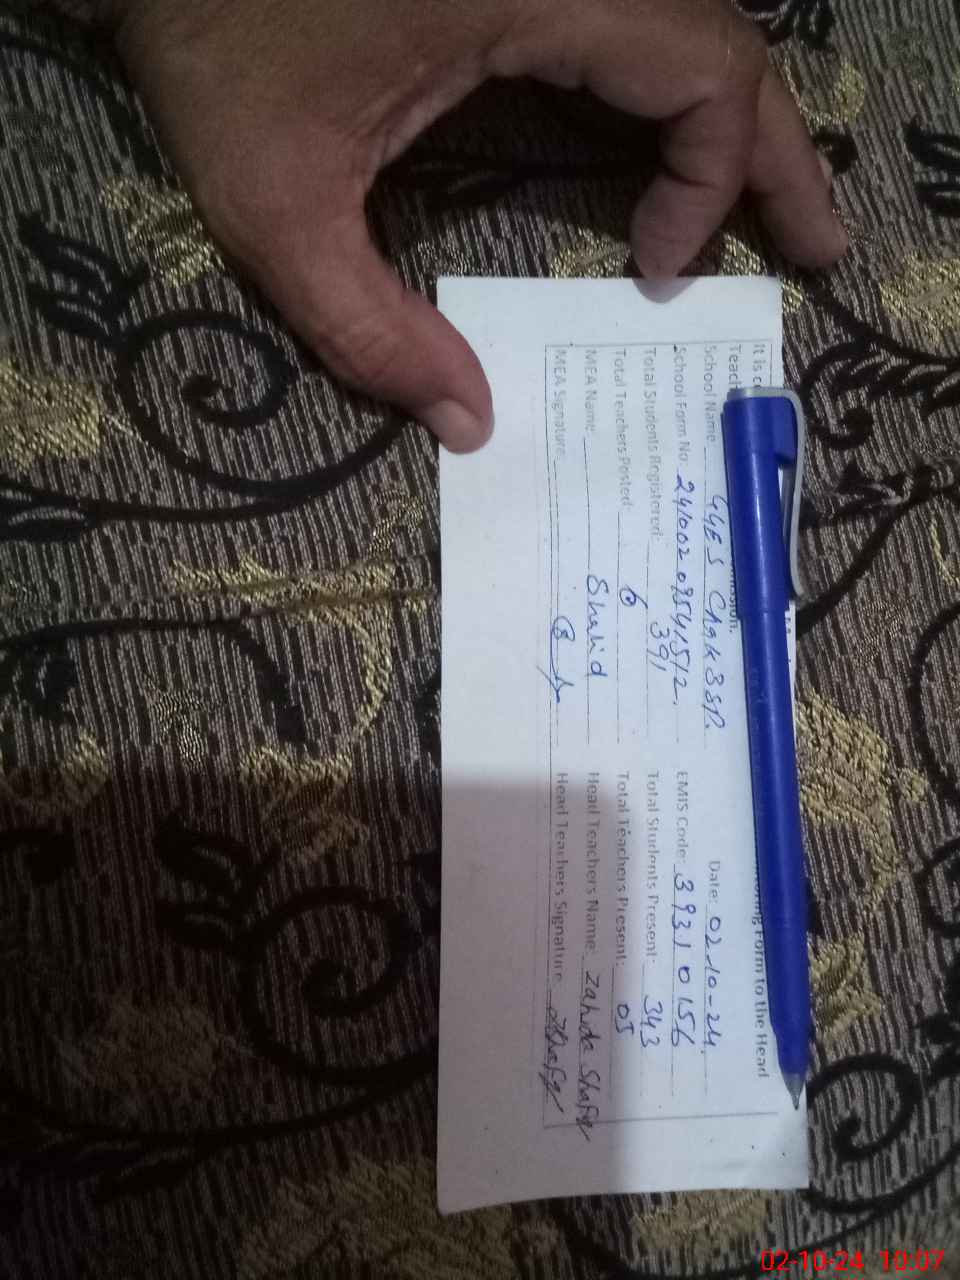 It is c
Form to the Head
Teach
School Name GGES Chak 3SP. Date: 02-10-24.
School Form No: 2410020954512. EMIS Code: 39310156
Total Students Registered: 391 Total Students Present: 343
Total Teachers Posted: 6 Total Teachers Present: 05
MEA Name: Shahid Head Teachers Name: Zahida Shafiq
MEA Signature: Head Teachers Signature
02-10-24 10:07